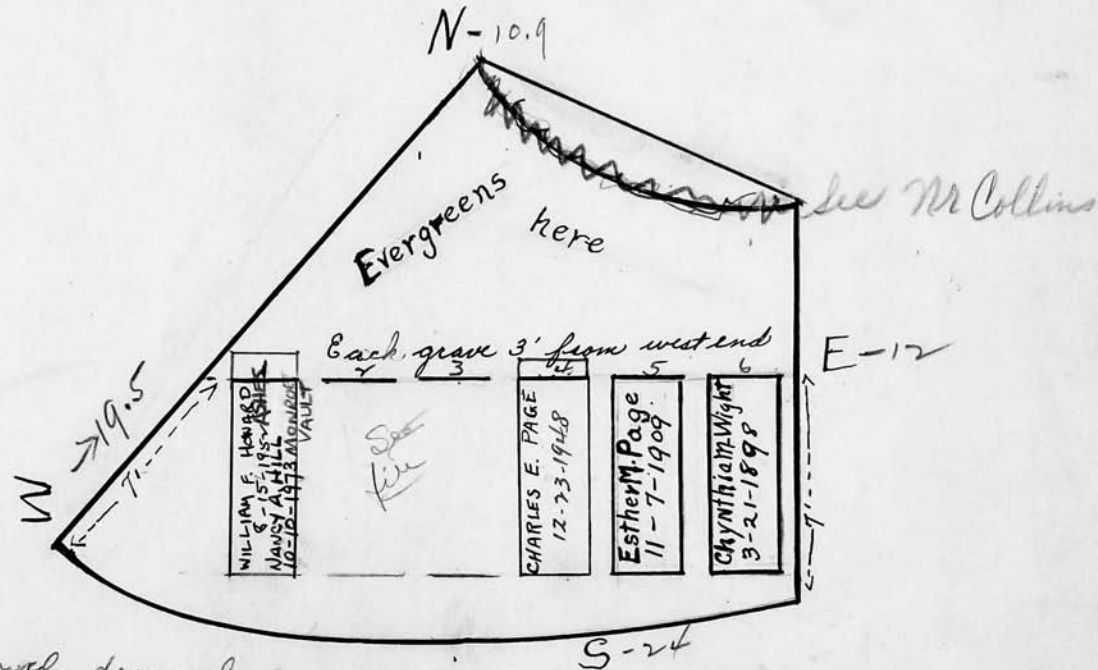 N-10.9
See Mr Collins
Evergreens
here
Each grave 3' from west end
E-12
2
3
4
5
6
19.5
7'
W
WILLIAM F. HOWARD
8-15-195 ASHES
NANCY A. HILL
10-10-1973 MONROE
VAULT
See
File
CHARLES E. PAGE
12-23-1948
Esther M. Page
11-7-1909
Chynthia M. Wight
3-21-1898
7'
S-24